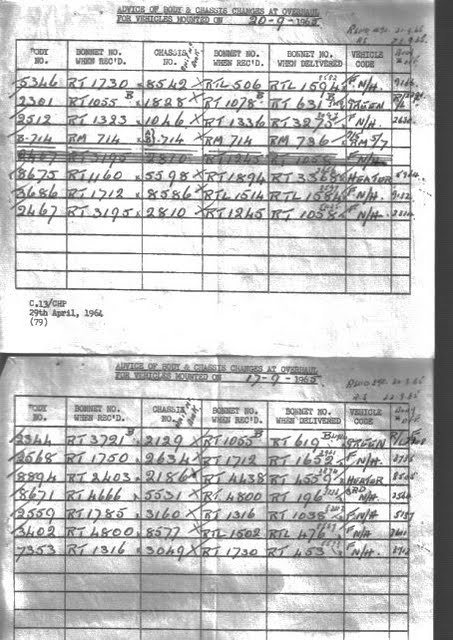 ADVICE OF BODY & CHASSIS CHANGES AT OVERHAUL
FOR VEHICLES MOUNTED ON 20-9-1965
BODY NO. BONNET NO. WHEN REC'D. CHASSIS NO. BONNET NO. WHEN REC'D. BONNET NO. WHEN DELIVERED VEHICLE CODE
5346 RT 1730 8542 X RTL 506 RTL 1594 F N/A.
2301 RT 1055 B 1828 X RT 1078 B RT 631 GREEN
2512 RT 1323 1046 X RT 1336 RT 3275 F N/A.
B-714 RM 714 714 X RM 714 RM 736 RM 5/7
RT 3195 2810 RT 1245 RT 1058 F N/A
8675 RT 1160 5598 X RT 1894 RT 3368 HEATOR
3686 RT 1712 8586 X RTL 1514 RTL 1584 F N/A.
2467 RT 3195 2810 X RT 1245 RT 1058 F N/A.
C.13/CHP
29th April, 1964
(79)
ADVICE OF BODY & CHASSIS CHANGES AT OVERHAUL
FOR VEHICLES MOUNTED ON 17-9-1965
BODY NO. BONNET NO. WHEN REC'D. CHASSIS NO. BONNET NO. WHEN REC'D. BONNET NO. WHEN DELIVERED VEHICLE CODE
2344 RT 3721 B 2129 X RT 1055 B RT 619 B GREEN
2568 RT 1750 2634 X RT 1712 RT 1652 F N/A.
8894 RT 2403 2186 X RT 4438 RT 4559 HEATOR
8671 RT 4666 5531 X RT 4800 RT 196 3RD N/A
2559 RT 1785 3160 X RT 1316 RT 1038 F N/A.
3402 RT 4800 8577 X RTL 1502 RTL 476 F N/A
7353 RT 1316 3049 X RT 1730 RT 453 F N/A.